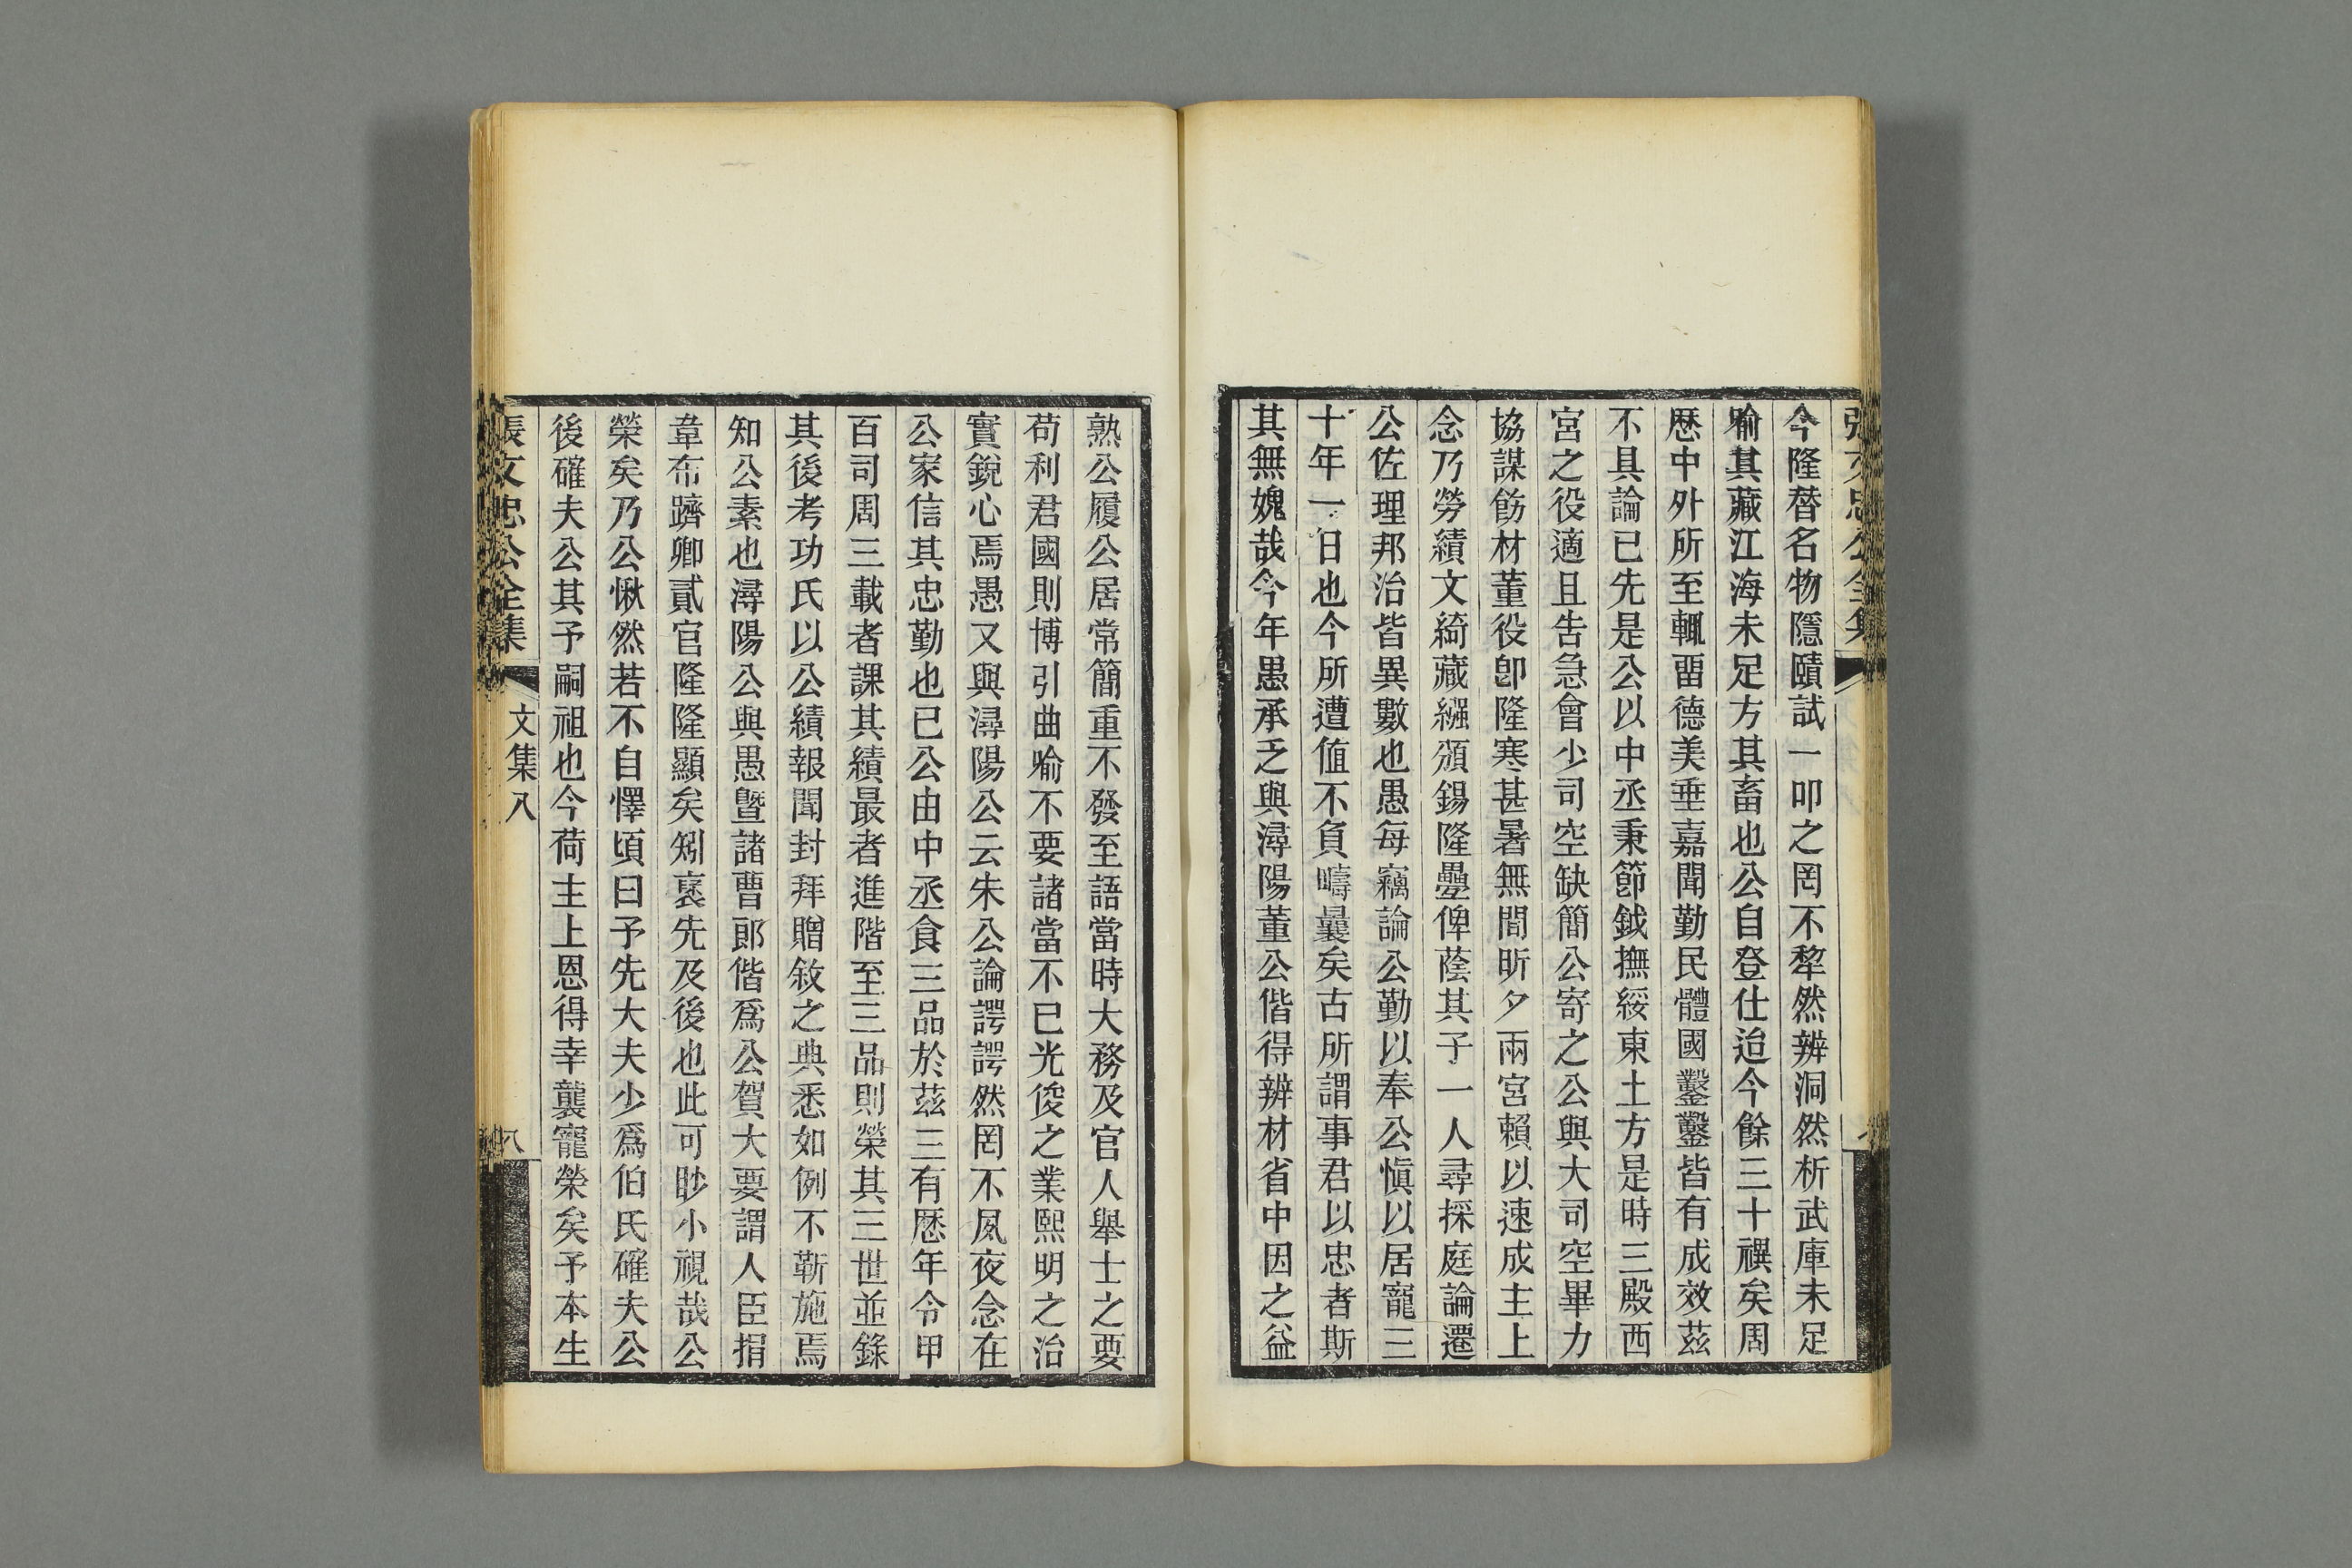 今隆替名物隱賾試一叩之罔不犂然辨洞然析武庫未足
喻其藏江海未足方其畜也公自登仕迨今餘三十禩矣周
歷中外所至輒畱德美垂嘉聞勤民體國鑿鑿皆有成效茲
不具論已先是公以中丞秉節鉞撫綏東土方是時三殿西
宮之役適且吿急會少司空缺簡公寄之公與大司空畢力
協謀飭材董役卽隆寒甚暑無間昕夕兩宮賴以速成主上
念乃勞績文綺藏繦頒錫隆疊俾蔭其子一人尋採庭論遷
公佐理邦治皆異數也愚每竊論公勤以奉公愼以居寵三
十年一日也今所遭值不負疇曩矣古所謂事君以忠者斯
其無媿哉今年愚承乏與潯陽董公偕得辨材省中因之益
熟公履公居常簡重不發至語當時大務及官人舉士之要
苟利君國則博引曲喻不要諸當不已光俊之業熙明之治
實銳心焉愚又與潯陽公云朱公論諤諤然罔不夙夜念在
公家信其忠勤也已公由中丞食三品於茲三有歷年令甲
百司周三載者課其績最者進階至三品則榮其三世並錄
其後考功氏以公績報聞封拜贈敘之典悉如例不靳施焉
知公素也潯陽公與愚曁諸曹郎偕爲公賀大要謂人臣捐
韋布躋卿貳官隆隆顯矣矧裦先及後也此可眇小視哉公
榮矣乃公愀然若不自懌頃曰予先大夫少爲伯氏確夫公
後確夫公其予嗣祖也今荷主上恩得幸襲寵榮矣予本生
張文忠公全集 文集八 八